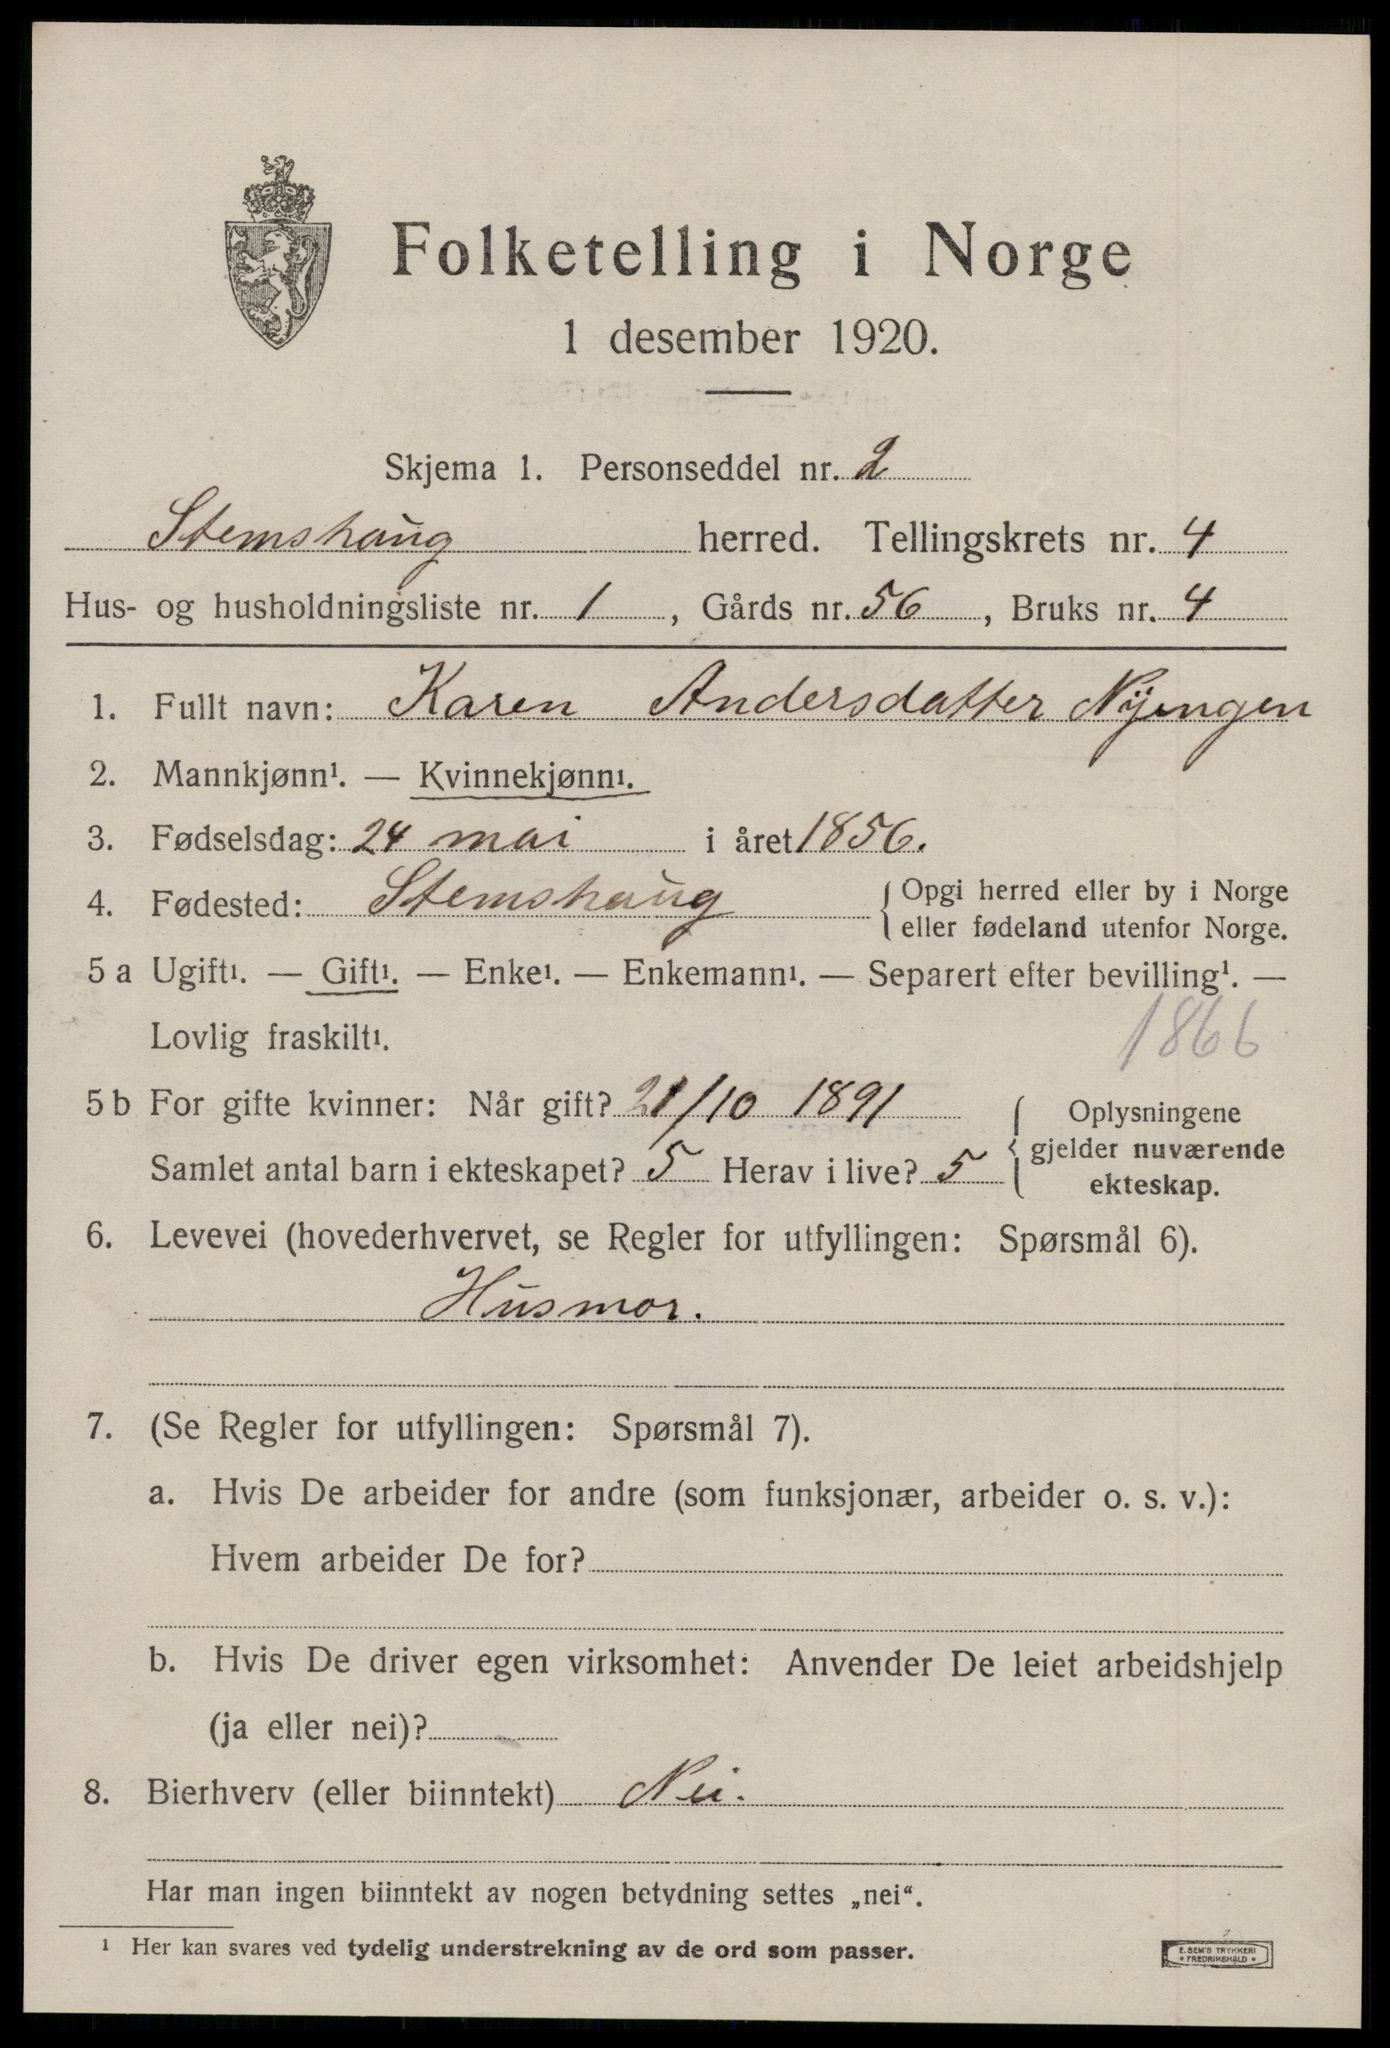 Folketelling i Norge
1 desember 1920.
Skjema 1. Personseddel nr. 2
Stemshaug herred. Tellingskrets nr. 4
Hus- og husholdningsliste nr. 1, Gårds nr. 56, Bruks nr. 4
1. Fullt navn: Karen Andersdatter Nyengen
2. Mannkjønn¹. — Kvinnekjønn¹.
3. Fødselsdag: 24 mai i året 1856.
4. Fødested: Stemshaug { Opgi herred eller by i Norge
eller fødeland utenfor Norge.
5 a Ugift¹. — Gift¹. — Enke¹. — Enkemann¹. — Separert efter bevilling¹. —
Lovlig fraskilt¹. 1866
5 b For gifte kvinner: Når gift? 21/10 1891
Samlet antal barn i ekteskapet? 5 Herav i live? 5
{ Oplysningene
gjelder nuværende
ekteskap.
6. Levevei (hovederhvervet, se Regler for utfyllingen: Spørsmål 6).
Husmor.
7. (Se Regler for utfyllingen: Spørsmål 7).
a. Hvis De arbeider for andre (som funksjonær, arbeider o. s. v.):
Hvem arbeider De for?
b. Hvis De driver egen virksomhet: Anvender De leiet arbeidshjelp
(ja eller nei)?
8. Bierhverv (eller biinntekt) Nei.
Har man ingen biinntekt av nogen betydning settes „nei“.
¹ Her kan svares ved tydelig understrekning av de ord som passer.
E. SEM'S TRYKKERI
• FREDRIKSHALD •